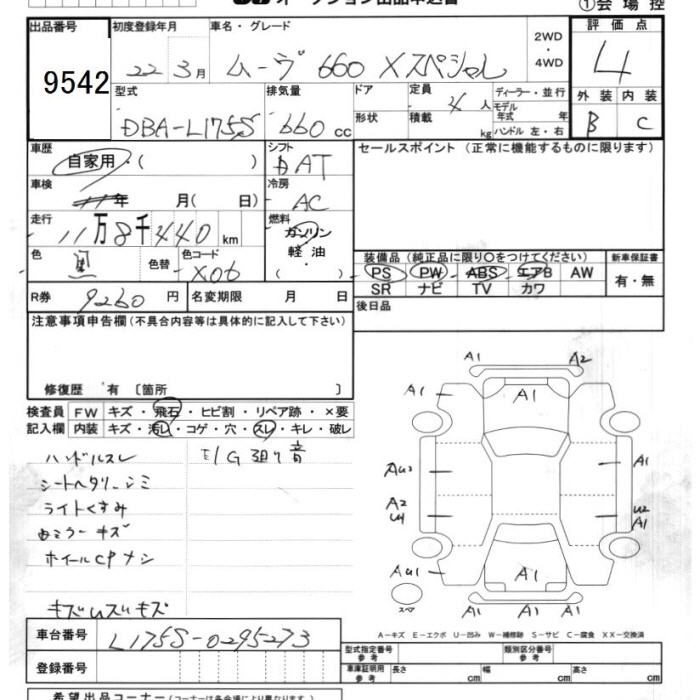 ①会場控
出品番号 初度登録年月 車名・グレード 2WD・4WD 評価点
9542 22年3月 ムーヴ 660 Xスペシャル 4
型式 排気量 ドア 定員 4人 ディーラー・並行 外装 内装
DBA-L175S 660cc 形状 積載 kg モデル年式 年 ハンドル 左・右 B C
車歴 シフト セールスポイント (正常に機能するものに限ります)
自家用・( ) DAT
車検 冷房
年 月( 日) AC
走行 燃料
11万8千440km ガソリン
軽油
( )
色 黒 色替 色コード X06
装備品(純正品に限り○をつけてください) 新車保証書
PS PW ABS エアB AW 有・無
SR ナビ TV カワ
R券 9260円 名変期限 月 日 後日品
注意事項申告欄(不具合内容等は具体的に記入して下さい)
修復歴 有 〔箇所 〕
検査員 FW キズ・飛石・ヒビ割・リペア跡・×要
記入欄 内装 キズ・汚レ・コゲ・穴・スレ・キレ・破レ
ハンドルスレ E/G廻り音
シートヘタリ シミ
ライトくすみ
ホイールCPナシ
A1 A2
A1 A1
AU2 A1
A2 U2
U4 A1
AU1 A1
スペア A1 A1
A-キズ E-エクボ U-凹み W-補修跡 S-サビ C-腐食 XX-交換済
車台番号 L175S-0295273
型式指定番号 参考 類別区分番号 参考
登録番号
車庫証明用 参考 長さ cm 幅 cm 高さ cm
希望出品コーナー(コーナーは各会場により異なります)